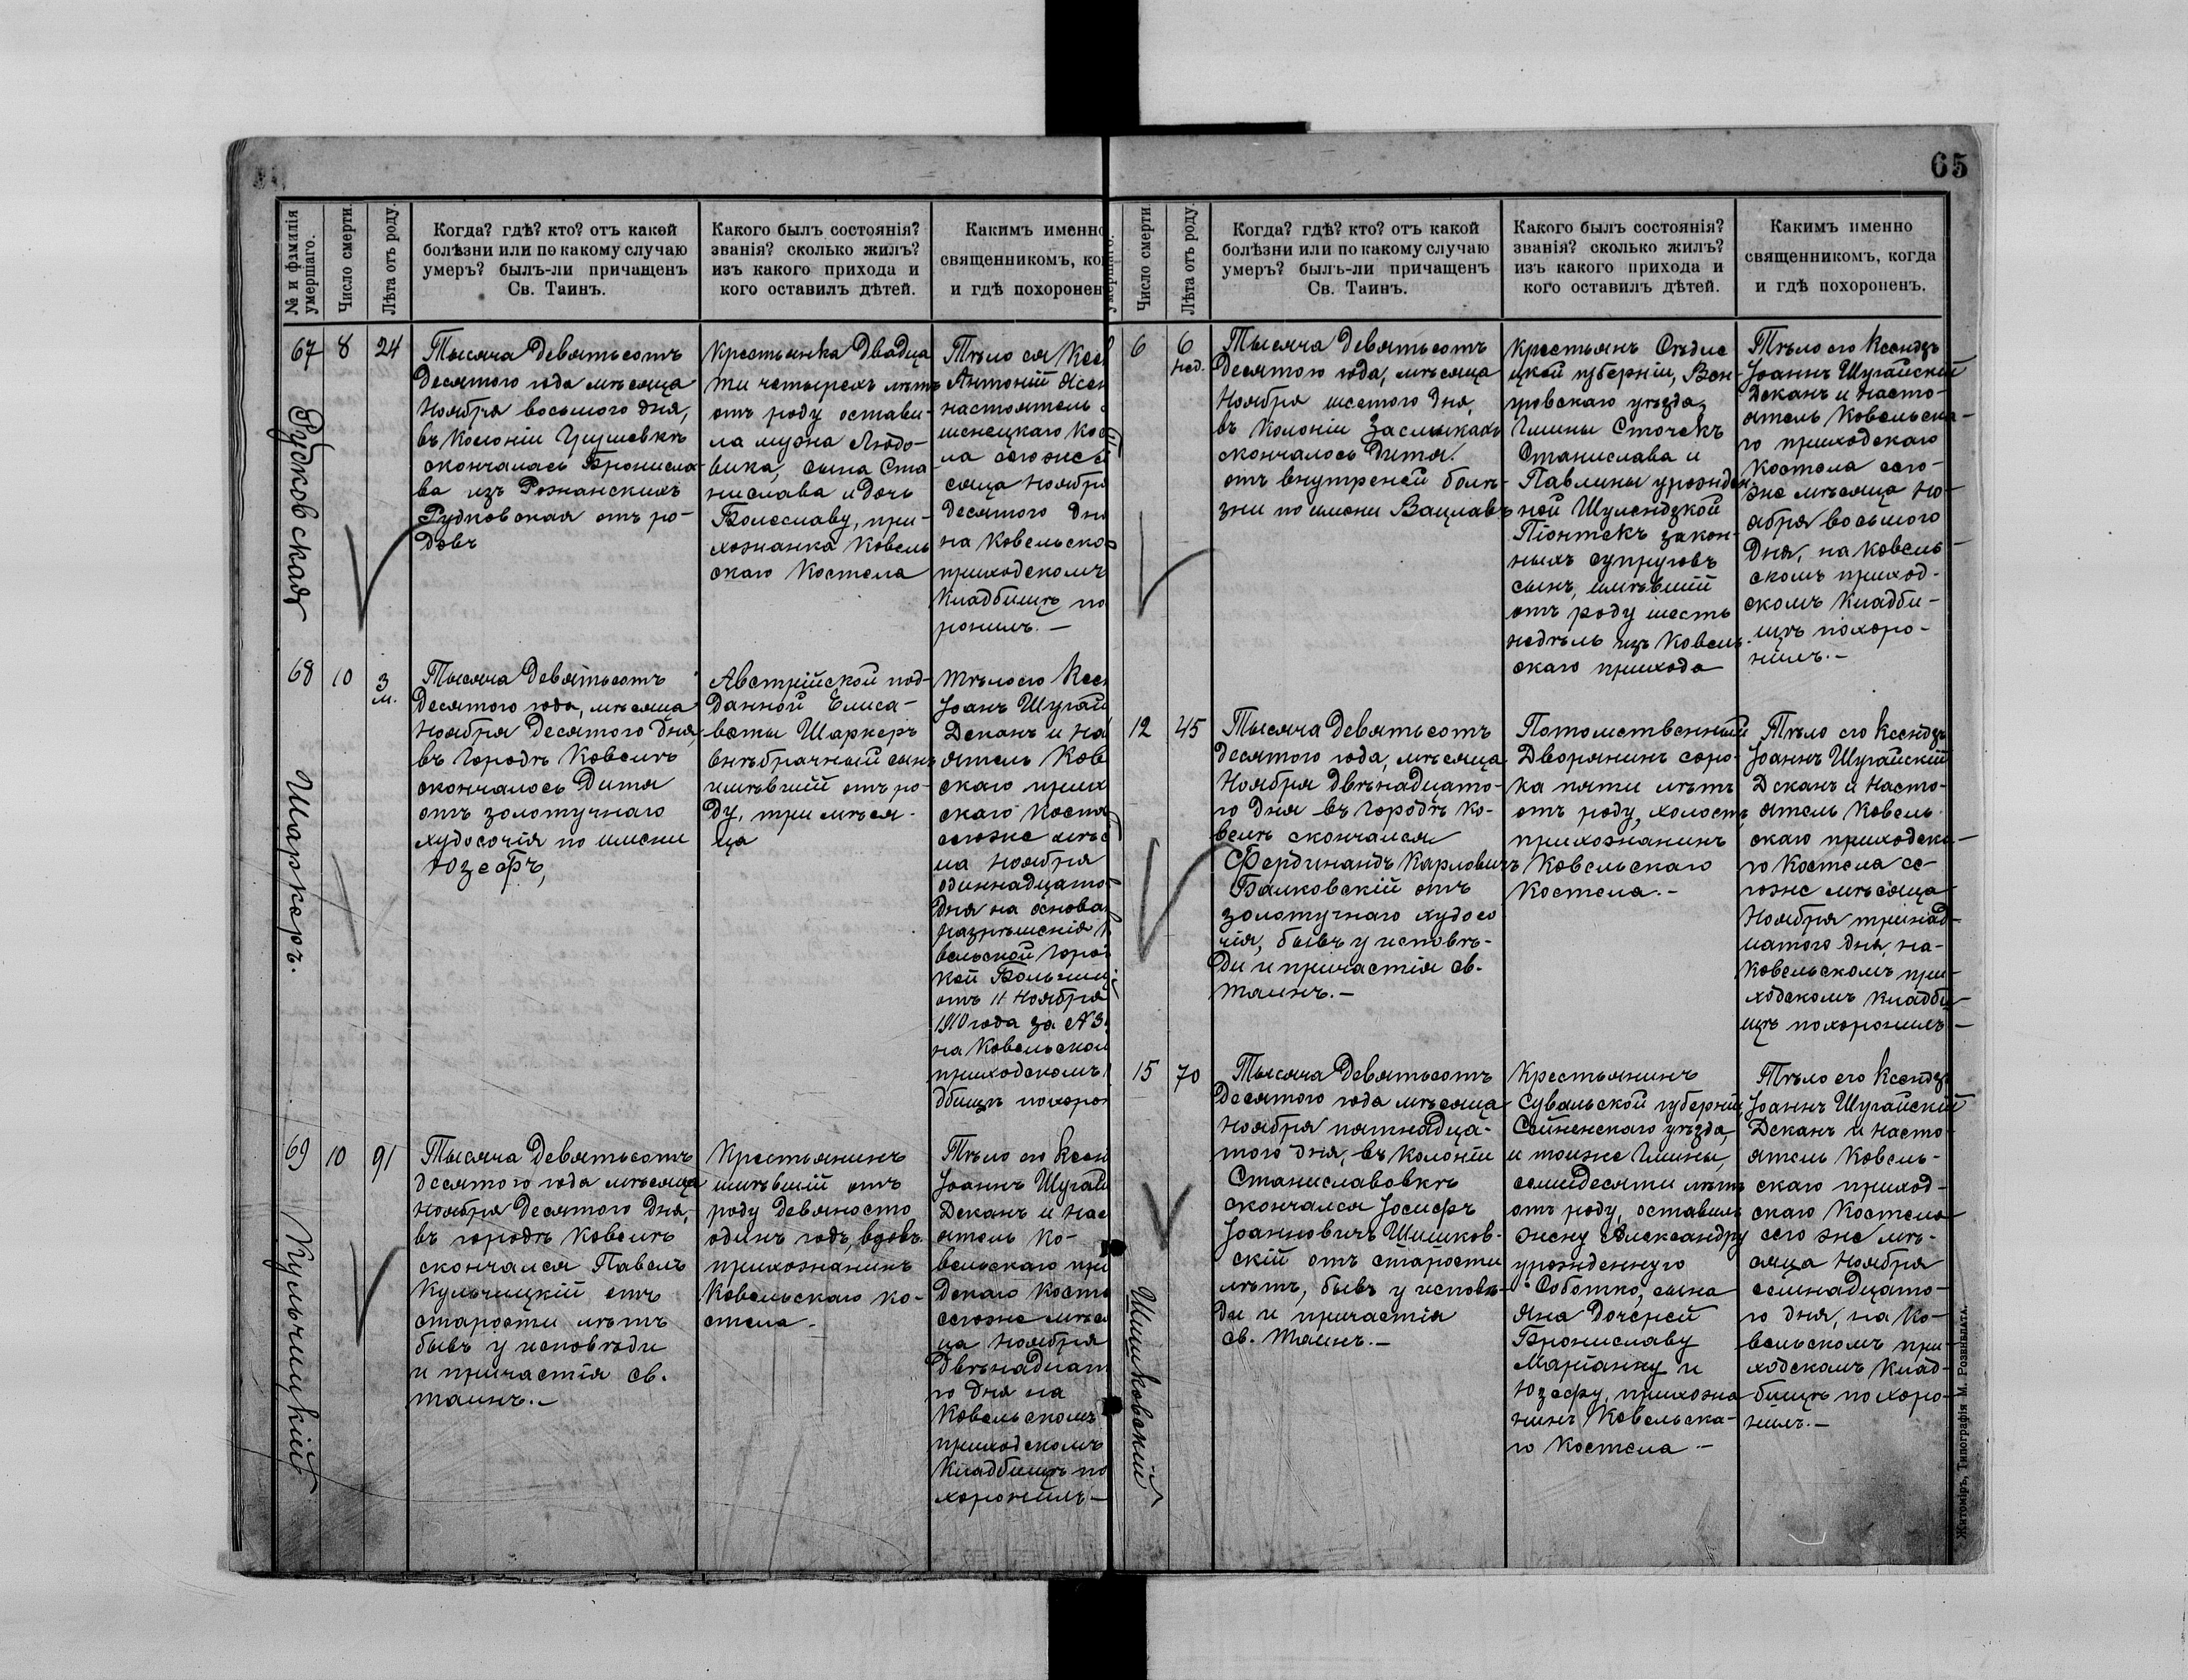 65
№ и фамилія
умершаго.
Число смерти.
Лѣта отъ роду.
Когда? гдѣ? кто? отъ какой
болѣзни или по какому случаю
умеръ? былъ-ли причащенъ
Св. Таинъ.
Какого былъ состоянія?
званія? сколько жилъ?
изъ какого прихода и
кого оставилъ дѣтей.
Каким​ъ именно
священникомъ, ко
и гдѣ похоронен
67
Рудковская
8
24
Тысяча девятьсотъ
десятого года мѣсяца
Ноября восьмого дня,
въ Колоніи
скончалась Бронисла-
ва изъ Рожанскихъ
Рудковская отъ ро-
довъ
Крестьянка двадца
ти четырехъ лѣтъ
отъ роду остави-
ла мужа Людо-
вика, сына Ста
нислава и дочь
Болеславу, при-
хожанка Ковель
скаго Костела
Тѣло ея Ксен
Антоній
настоятель
шенецкаго Кос
ла сегоже м
сяца Ноября
десятого дня
на Ковельско
приходскомъ
Кладбищѣ по
ронилъ.—
68
Шаркеръ.
10
3
м.
Тысяча девятьсотъ
десятого года, мѣсяца
Ноября десятого дня,
въ городѣ Ковелѣ
скончалось дитя
отъ золотучнаго
худосочія по имени
Юзефъ,
Австрійской под-
данной Елиса-
веты Шаркеръ
внѣбрачный сынъ
имѣвшій отъ ро-
ду, три мѣся-
ца
Тѣло его Ксен
Іоанъ Шугай
Деканъ и На
ятель Ков
скаго прих
скаго Косте
сегоже мѣс
ца Ноября
одиннадцато
дня на основа
разрѣшенія
вельской горо
кой Больниц
отъ 11 Ноября
1910 года за №3
на Ковельском
приходскомъ
дбищѣ похоро
69
Кульчицкій
10
91
Тысяча девятьсотъ
десятого года мѣсяца
Ноября десятого дня,
въ городѣ Ковелѣ
скончался Павелъ
Кульчицкій отъ
старости лѣтъ
бывъ у исповѣди
и причастія св.
таинъ.—
Крестьянинъ
имѣвшій отъ
роду девяносто
одинъ годъ, вдовъ
прихожанинъ
Ковельскаго ко-
стела.
Тѣло его Ксен
Іоаннъ Шугай
Деканъ и Нас
ятель Ко-
вельскаго при
дскаго Косте
сегоже мѣся
ца Ноября
двѣнадцат
го дня на
Ковельскомъ
приходскомъ
Кладбищѣ по
хоронилъ—
умершаго.
Число смерти.
Лѣта отъ роду.
Когда? гдѣ? кто? отъ какой
болѣзни или по какому случаю
умеръ? былъ-ли причащенъ
Св. Таинъ.
Какого былъ состоянія?
званія? сколько жилъ?
изъ какого прихода и
кого оставилъ дѣтей.
Какимъ именно
священникомъ, когда
и гдѣ похороненъ.
6
6
нед.
Тысяча девятьсотъ
десятого года, мѣсяца
Ноября шестого дня,
въ Колоніи Засмыкахъ
скончалось дитя
отъ внутреней болѣ-
зни по имени Вацлавъ
Крестьянъ Сѣдле
цкой губерніи, Вен-
гровскаго уѣзда,
Гмины Сточекъ
Станислава и
Павлины урожден-
ной Шулендзкой
Піонтекъ закон-
ныхъ супруговъ
сынъ, имѣвшій
отъ роду шесть
недѣль изъ Ковель-
скаго прихода
Тѣло его Ксендзъ
Іоаннъ Шугайскій
Деканъ и Насто-
ятель Ковельска-
го приходскаго
Костела сего-
же мѣсяца Но-
ября восьмого
дня, на Ковель-
скомъ приход-
скомъ Кладби-
щѣ похоро-
нилъ.—
12
45
Тысяча девятьсотъ
десятого года, мѣсяца
Ноября двѣнадцато-
го дня въ городѣ Ко-
велѣ скончался
Фердинандъ Карловичъ
Балковскій отъ
золотучнаго худосо
чія, бывъ у исповѣ-
ди и причастія св.
таинъ.—
Потомственный
Дворянинъ соро-
ка пяти лѣтъ
отъ роду, холостъ,
прихожанинъ
Ковельскаго
Костела.—
Тѣло его Ксендзъ
Іоаннъ Шугайскій
Деканъ и Насто-
ятель Ковель-
скаго приходска-
го Костела се-
гоже мѣсяца
Ноября тринад-
цатого дня, на-
Ковельскомъ при-
ходскомъ кладби-
щѣ похоронилъ—
15
70
Шишковскій
Тысяча девятьсотъ
десятого года мѣсяца
Ноября пятнадца-
того дня, въ Колоніи
Станиславовкѣ
скончался Іосифъ
Іоанновичъ Шишков-
скій отъ старости
лѣтъ, бывъ у исповѣ-
ди и причастія
св. таинъ.—
Крестьянинъ
Сувальской губерніи
Сейненскаго уѣзда,
и тоиже Гмины,
семидесяти лѣтъ
отъ роду, оставилъ
жену Александру
урожденную
Соботко, сына
Яна дочерей
Брониславу
Маріанну и
Юзефу, прихожа
нинъ Ковельска-
го Костела —
Тѣло его Ксендзъ
Іоаннъ Шугайскій
Деканъ и Насто-
ятель Ковель-
скаго приход-
скаго Костела
сего же мѣ-
сяца Ноября
семнадцато-
го дня, на Ко-
вельскомъ при-
ходскомъ Клад-
бищѣ похоро-
нилъ.—
Житоміръ, Типографія М. Розенблата.